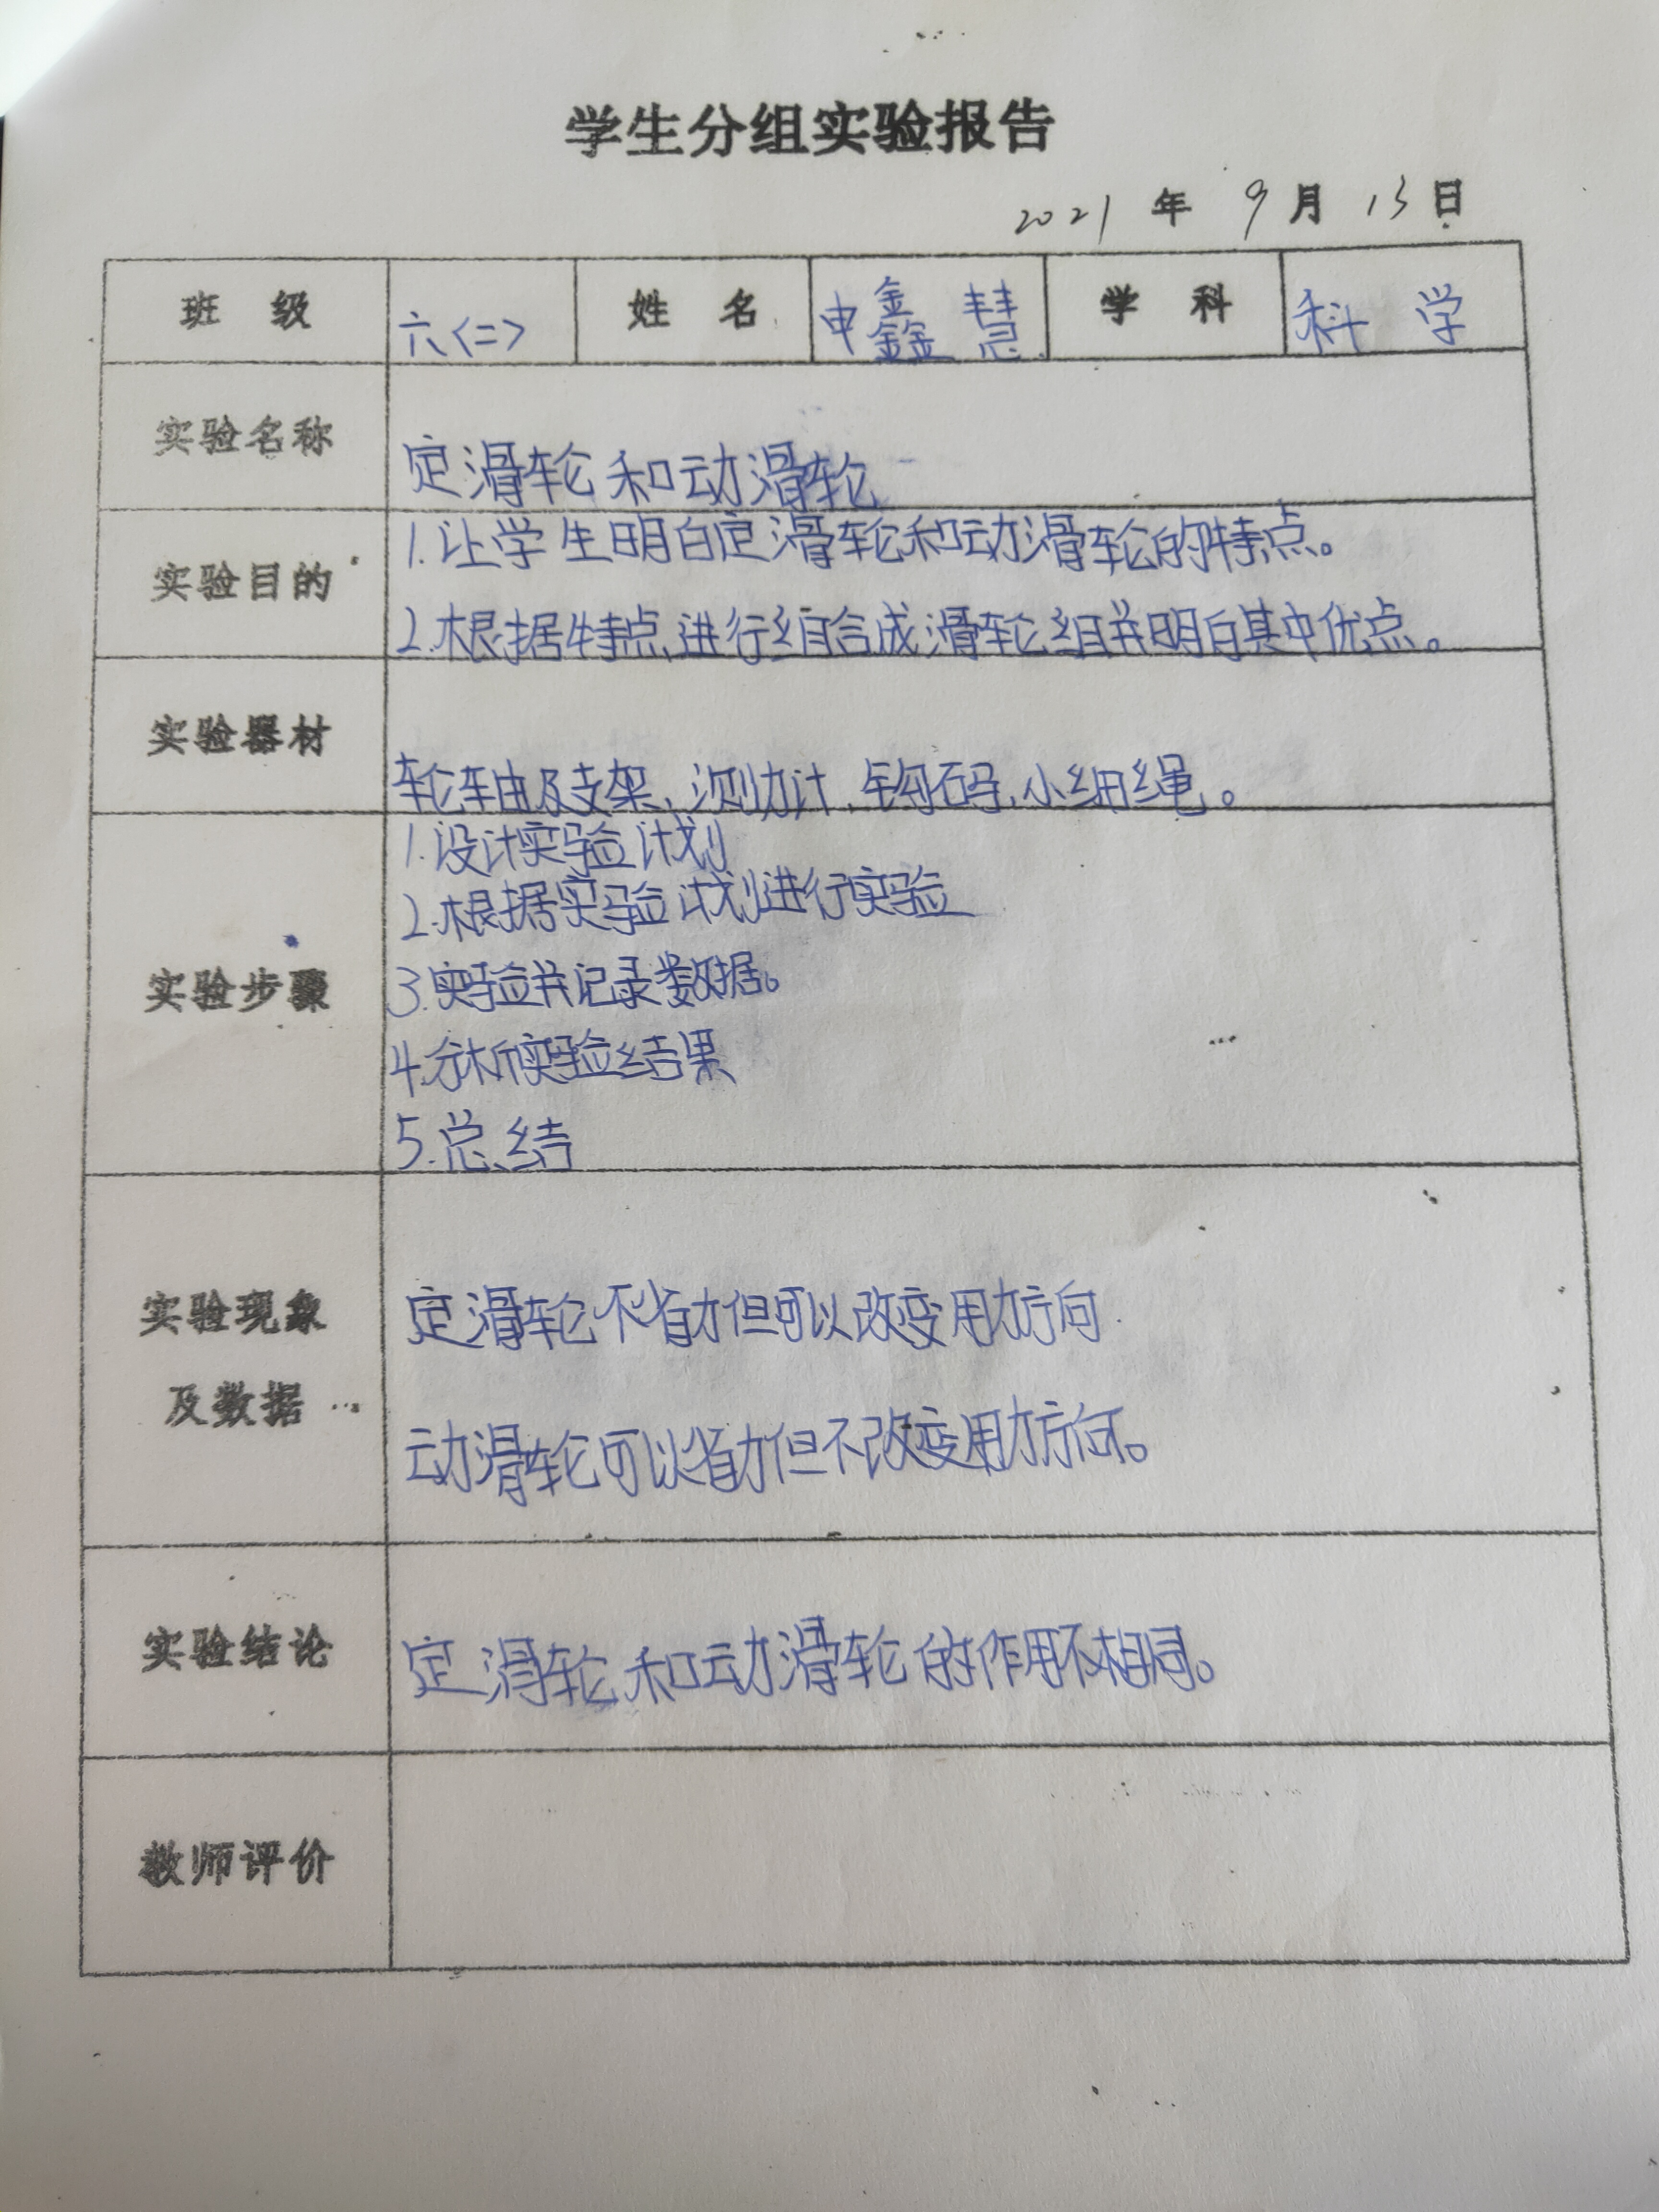 学生分组实验报告
2021 年 9 月 13 日
班 级 六<二> 姓 名 申鑫慧 学 科 科 学
实验名称 定滑轮和动滑轮
实验目的 1.让学生明白定滑轮和动滑轮的特点。
2.根据特点,进行组合成滑轮组并明白其中优点。
实验器材 轮轴及支架、测力计、钩码、小细绳。
实验步骤 1.设计实验计划
2.根据实验计划进行实验
3.实验并记录数据。
4.分析实验结果
5.总结
实验现象及数据 定滑轮不省力但可以改变用力方向.
动滑轮可以省力但不改变用力方向。
实验结论 定滑轮和动滑轮的作用不相同。
教师评价